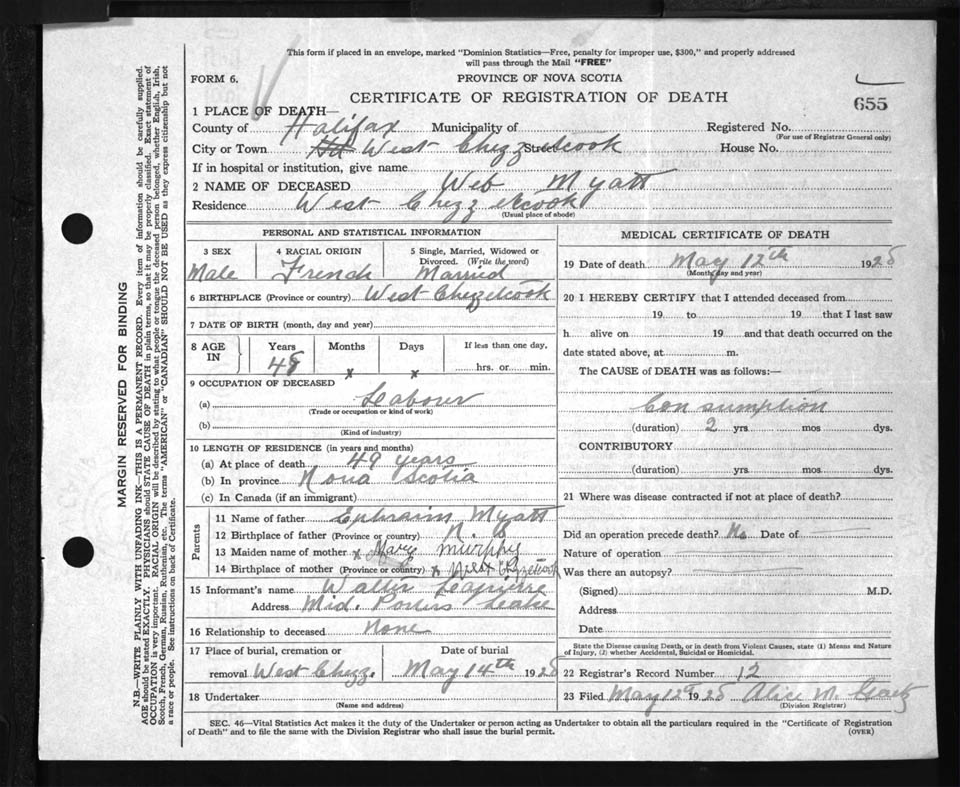 This form if placed in an envelope, marked "Dominion Statistics—Free, penalty for improper use, $300," and properly addressed
will pass through the Mail "FREE"
FORM 6.
PROVINCE OF NOVA SCOTIA
CERTIFICATE OF REGISTRATION OF DEATH
655
1 PLACE OF DEATH—
County of Halifax Municipality of Registered No.
(For use of Registrar General only)
City or Town West Chezzetcook Street House No.
If in hospital or institution, give name
2 NAME OF DECEASED Web Myatt
Residence West Chezzetcook
(Usual place of abode)
PERSONAL AND STATISTICAL INFORMATION
3 SEX 4 RACIAL ORIGIN 5 Single, Married, Widowed or Divorced. (Write the word)
Male French Married
6 BIRTHPLACE (Province or country) West Chezzetcook
7 DATE OF BIRTH (month, day and year)
8 AGE IN Years Months Days If less than one day,
48 x x hrs. or min.
9 OCCUPATION OF DECEASED
(a) Labour
(Trade or occupation or kind of work)
(b)
(Kind of industry)
10 LENGTH OF RESIDENCE (in years and months)
(a) At place of death 49 years
(b) In province Nova Scotia
(c) In Canada (if an immigrant)
Parents
11 Name of father Ephraim Myatt
12 Birthplace of father (Province or country) N. S.
13 Maiden name of mother x Mary Murphy
14 Birthplace of mother (Province or country) x West Chezzetcook
15 Informant's name Walter Lapierre
Address Mid. Porters Lake
16 Relationship to deceased None
17 Place of burial, cremation or removal Date of burial
West Chezz. May 14th 1925
18 Undertaker
(Name and address)
MEDICAL CERTIFICATE OF DEATH
19 Date of death May 12th 1925
(Month, day and year)
20 I HEREBY CERTIFY that I attended deceased from
19 to 19 that I last saw
h alive on 19 and that death occurred on the
date stated above, at m.
The CAUSE of DEATH was as follows:—
Consumption
(duration) 2 yrs. mos. dys.
CONTRIBUTORY
(duration) yrs. mos. dys.
21 Where was disease contracted if not at place of death?
Did an operation precede death? No Date of
Nature of operation
Was there an autopsy?
(Signed) M.D.
Address
Date
State the Disease causing Death, or in death from Violent Causes, state (1) Means and Nature
of Injury, (2) whether Accidental, Suicidal or Homicidal.
22 Registrar's Record 12
23 Filed May 12 1925 Alice M. Gaetz
(Division Registrar)
SEC. 46—Vital Statistics Act makes it the duty of the Undertaker or person acting as Undertaker to obtain all the particulars required in the "Certificate of Registration
of Death" and to file the same with the Division Registrar who shall issue the burial permit. (OVER)
MARGIN RESERVED FOR BINDING
N.B.—WRITE PLAINLY WITH UNFADING INK—THIS IS A PERMANENT RECORD. Every item of information should be carefully supplied.
AGE should be stated EXACTLY. PHYSICIANS should STATE CAUSE OF DEATH in plain terms, so that it may be properly classified. Exact statement of
OCCUPATION is very important. RACIAL ORIGIN will be described by stating to what people or tongue the deceased person belonged, whether English, Irish,
Scotch, French, German, Russian, Ruthenian, etc. The terms "AMERICAN" or "CANADIAN" SHOULD NOT BE USED as they express citizenship but not
a race or people. See instructions on back of Certificate.